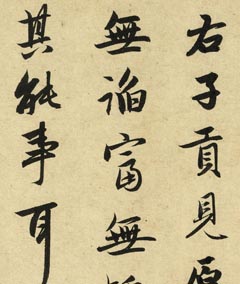 右子貢見原
無諂富無
其能事耳